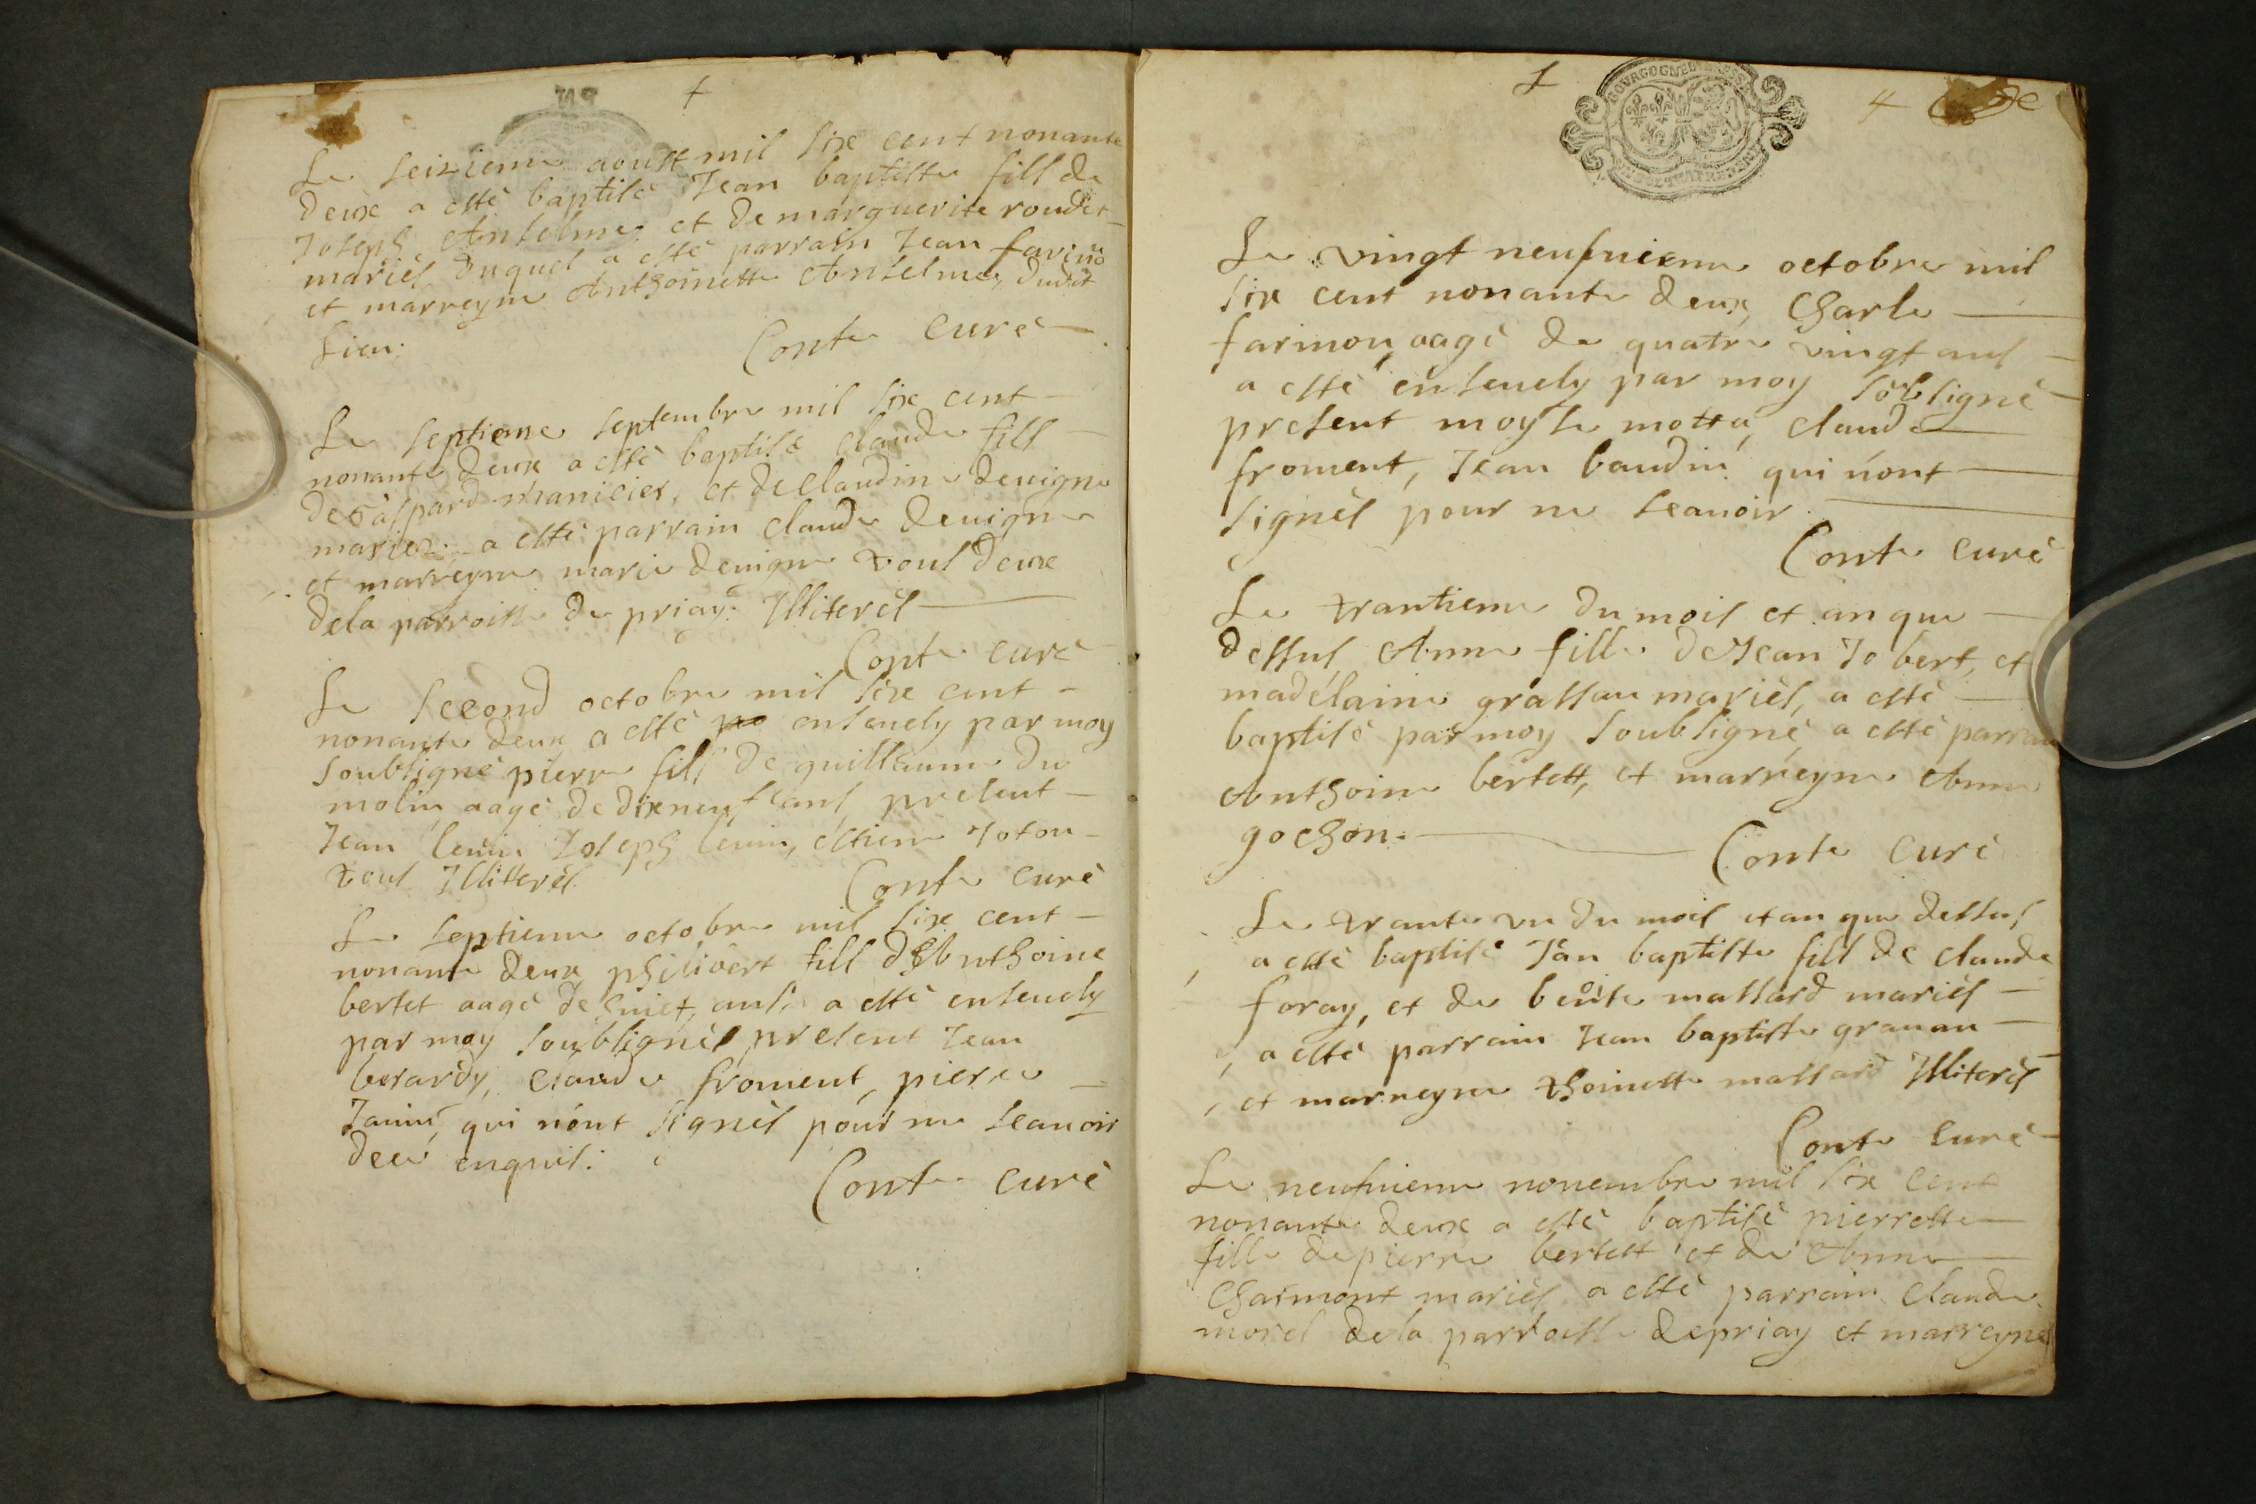 Le seizieme aoust mil six cent nonante
deux a esté baptisé Jean baptiste fils de
Joseph Anselme et de marguerite roudet
mariés, duquel a esté parrain Jean
et marreyne Anthoinette Anselme, dudit
lieu.
Conte curé
Le septieme septembre mil six cent
nonante deux a esté baptisé claude fils
de gaspard manicier, et de claudine devigne
mariez. a esté parrain claude devigne
et marreyne marie devigne tous deux
de la parroisse de priay. Illiterés
Conte curé
Le second octobre mil six cent
nonante deux a esté enseuely par moy
soubsigné pierre fils de guillaume du
molin aagé de dixneuf ans, present
Jean leuin Joseph leuin, estiene
tous Illiterés
Conte curé
Le septieme octobre mil six cent
nonante deux philibert fils d'Anthoine
bertet aagé de huict ans a esté enseuely
par moy soubsigné present Jean
berardy, claude froment, pierre
Janin, qui n'ont signés pour ne scauoir
de ce enquis.
Conte curé
BOURGOGNE
4
Le vingt neufuieme octobre mil
six cent nonante deux, Charle
farinou, aagé de quatre vingt ans
a esté enseuely par moy sobsigné
present moyse motta, claude
froment, Jean baudin qui n'ont
signés pour ne scauoir.
Conte curé
Le trantieme du mois et an que
dessus, Anne fille de Jean Jobert, et
madelaine grassau mariés, a esté
baptisé par moy soubsigné a esté parrain
Anthoine bertett, et marreyne Anne
gochon.
Conte curé
Le trante un du mois et an que dessus
a esté baptisé Jan baptiste fils de claude
foray, et de benoite massard mariés
a esté parrain Jean baptiste grauau
et marreyne thoinette massard Illiterés
Conte curé
Le neufuieme nouembre mil six cent
nonante deux a esté baptisé pierrette
fille de pierre bertett et de Anne
Charmont mariés a esté parrain Claude
morel de la parroisse de priay et marreyne